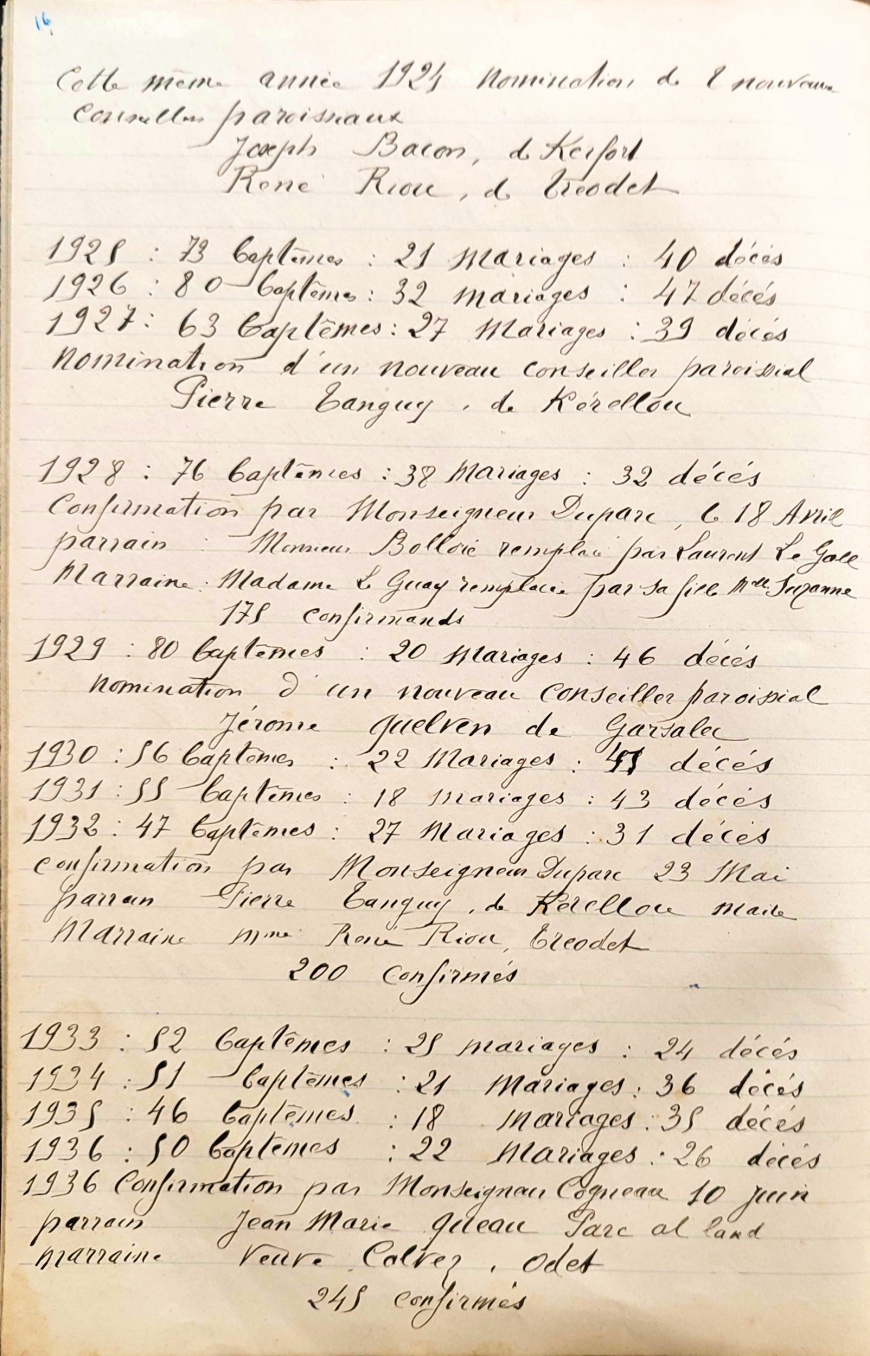 16
Cette même année 1924 nomination de 2 nouveaux
conseillers paroissiaux
Joseph Bacon, de Kerfort
René Riou, de Tréodet
1925 : 73 baptêmes : 21 Mariages : 40 décés
1926 : 80 baptêmes : 32 mariages : 47 décés
1927 : 63 baptêmes : 27 Mariages : 39 décés
nomination d'un nouveau conseiller paroissial
Pierre Tanguy, de Kérellou
1928 : 76 baptêmes : 38 Mariages : 32 décés
Confirmation par Monseigneur Duparc, le 18 Avril
parrain : Monsieur Bolloré remplacé par Laurent Le Gall
Marraine : Madame Le Guay remplacée par sa fille Mlle Suzanne
175 confirmands
1929 : 80 baptêmes : 20 Mariages : 46 décés
nomination d'un nouveau conseiller paroissial
Jérome Quelven de Garsalec
1930 : 56 baptêmes : 22 Mariages : décés
1931 : 55 baptêmes : 18 mariages : 43 décés
1932 : 47 baptêmes : 27 Mariages : 31 décés
confirmation par Monseigneur Duparc 23 Mai
parrain Pierre Tanguy, de Kérellou maire
Marraine Mme René Riou, Tréodet
200 confirmés
1933 : 52 baptêmes : 25 mariages : 24 décés
1934 : 51 baptêmes : 21 Mariages : 36 décés
1935 : 46 baptêmes : 18 Mariages : 35 décés
1936 : 50 baptêmes : 22 Mariages : 26 décés
1936 Confirmation par Monseigneur Cogneau 10 juin
parrain Jean Marie Quéau Parc al land
marraine Veuve Calvez, Odet
245 confirmés